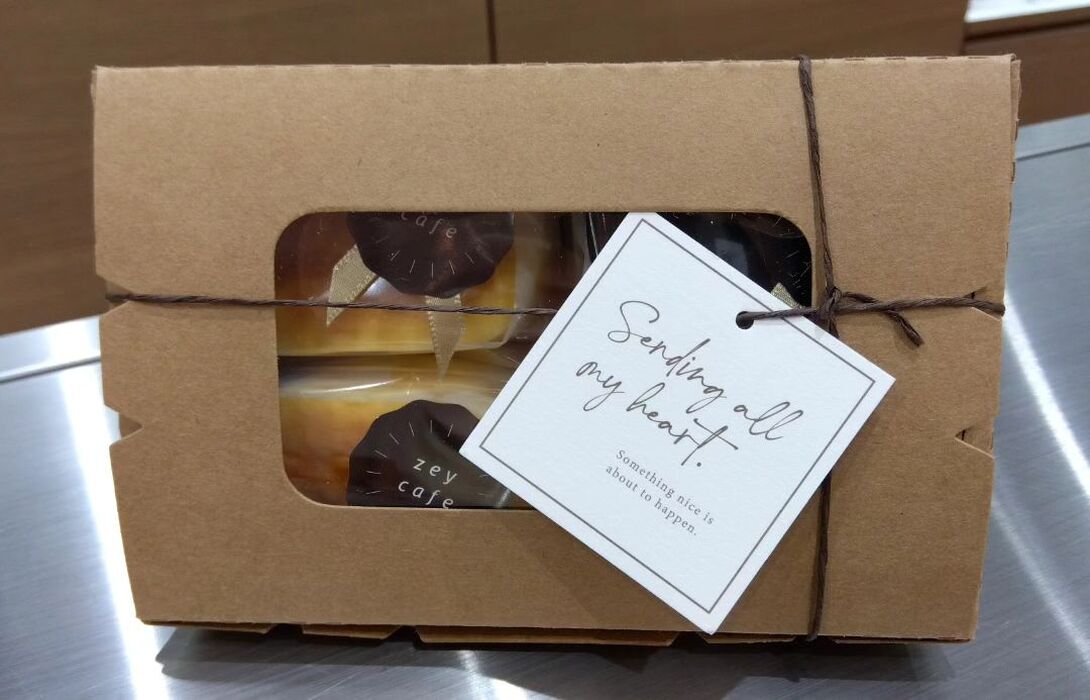 cafe
Sending all
my heart.
Something nice is
about to happen.
zey
cafe